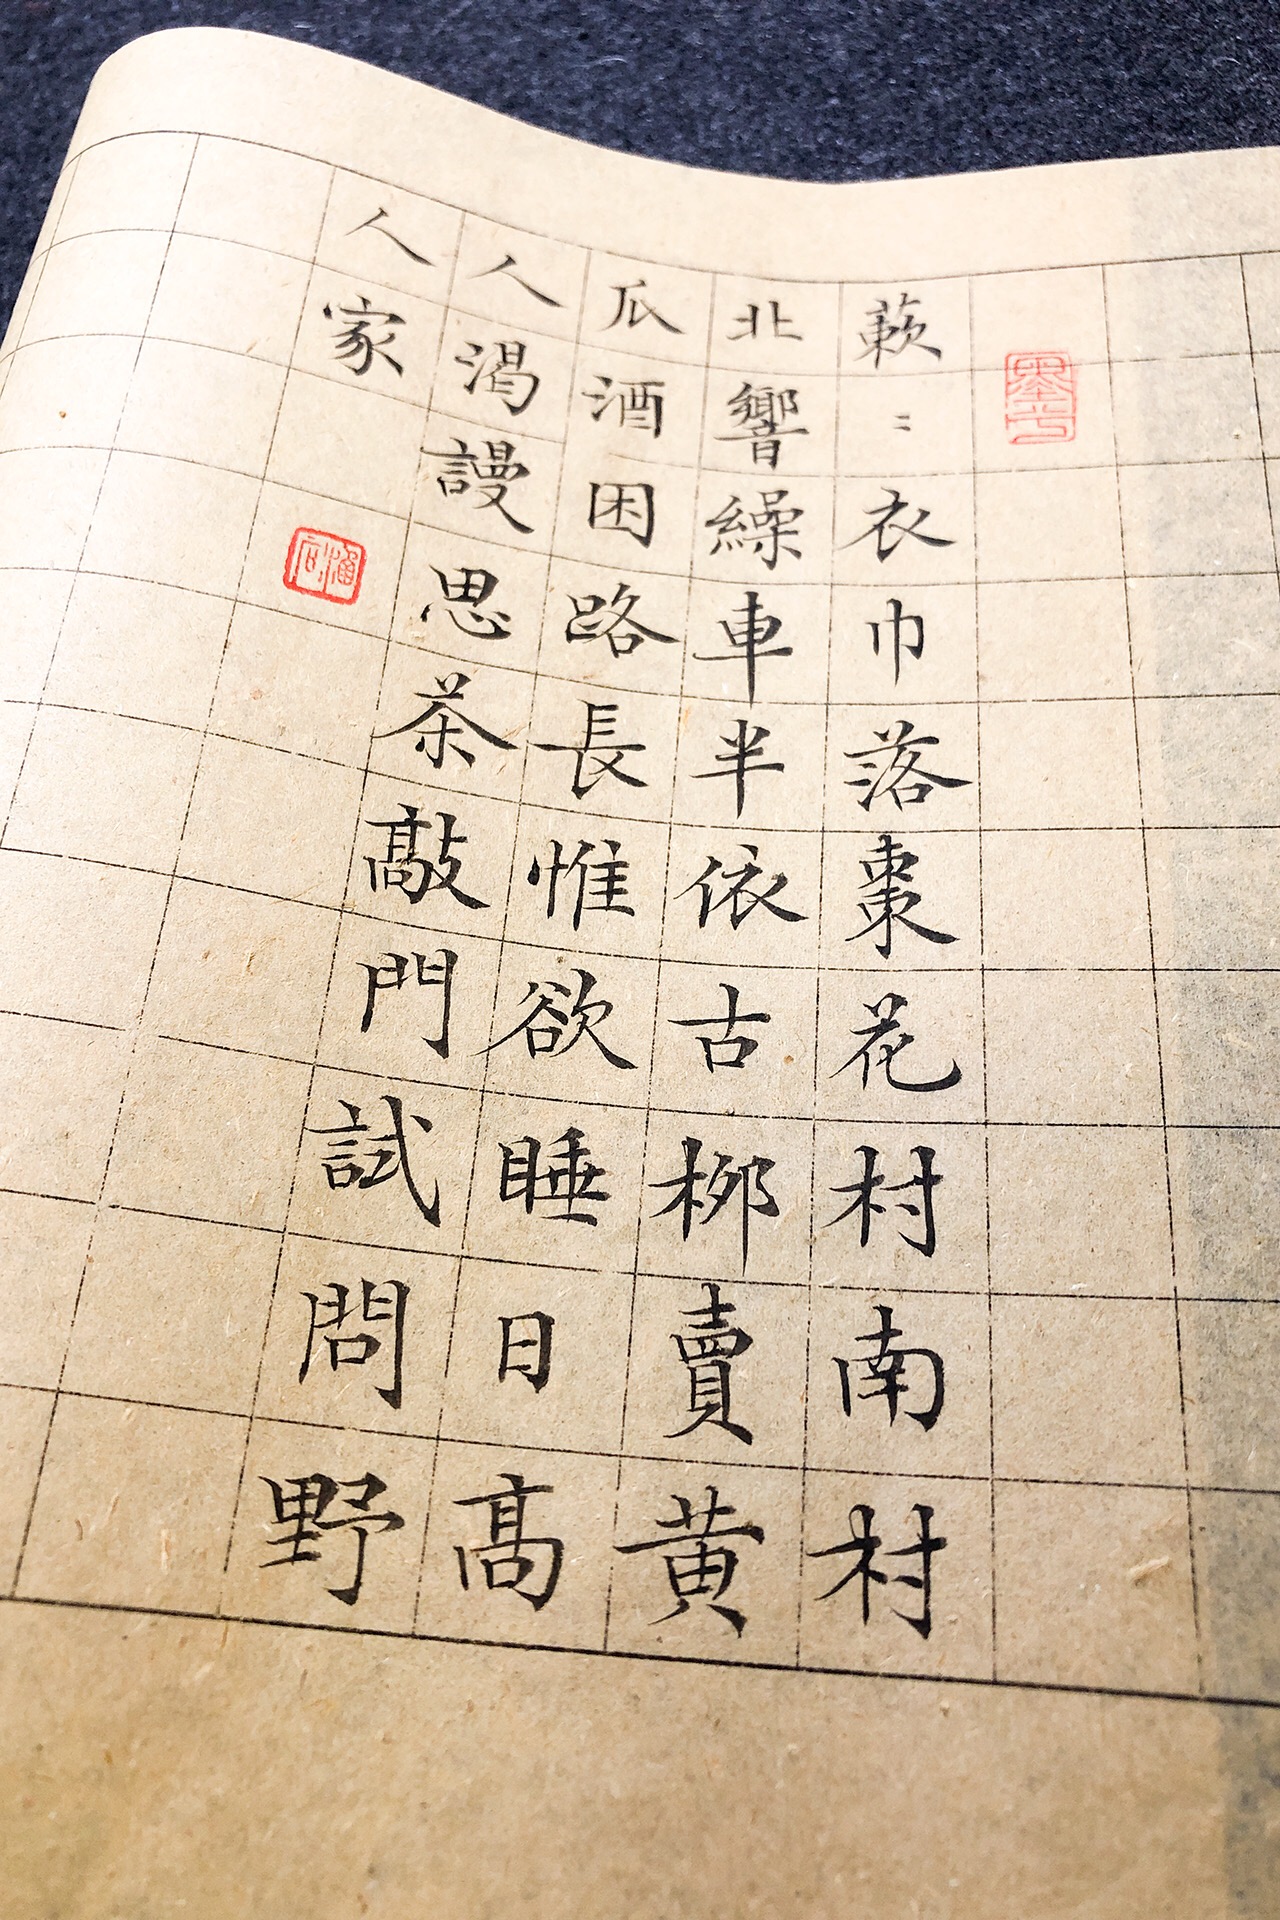 蔌〻衣巾落棗花村南村
北響繰車半依古桺賣黄
瓜酒困路長惟欲睡日髙
人渴謾思茶敲門試問野
人家